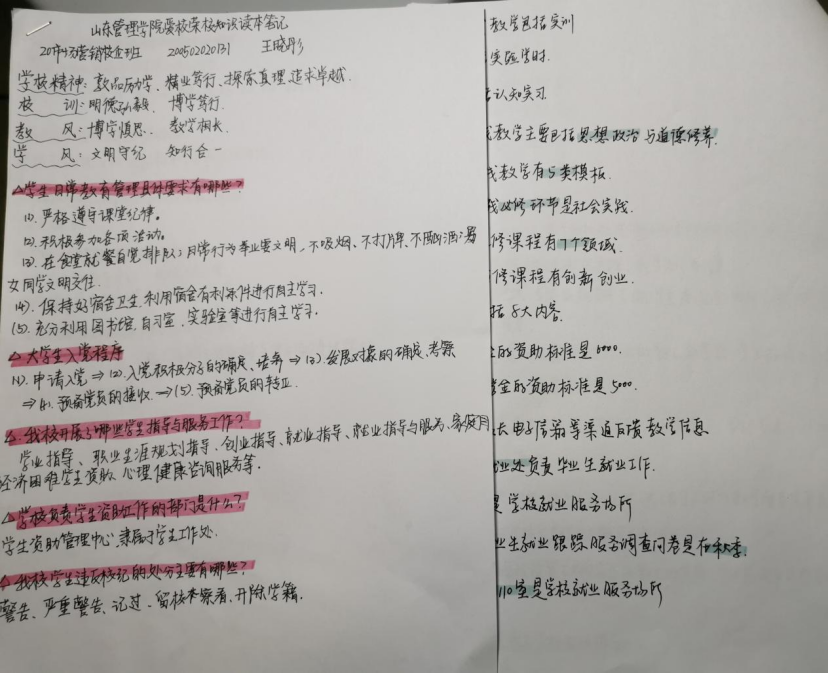 山东管理学院爱校荣校知识读本笔记
20市场营销校企班 200502020131 王晓彤
学校精神：敦品励学、精业笃行、探索真理、追求卓越.
校 训：明德弘毅、博学笃行.
教 风：博学慎思、教学相长.
学 风：文明守纪 知行合一
学生日常教育管理具体要求有哪些？
(1). 严格遵守课堂纪律。
(2). 积极参加各项活动。
(3). 在食堂就餐自觉排队；日常行为举止要文明、不吸烟、不打牌、不酗酒、男
女同学文明交往.
(4). 保持好宿舍卫生、利用宿舍有利条件进行自主学习.
(5). 充分利用图书馆、自习室、实验室等进行自主学习.
大学生入党程序
(1). 申请入党 ⇒ (2). 入党积极分子的确定、培养 ⇒ (3). 发展对象的确定、考察
⇒ (4). 预备党员的接收 ⇒ (5). 预备党员的转正.
我校开展了哪些学生指导与服务工作？
学业指导、职业生涯规划指导、创业指导、就业指导、就业指导与服务、家庭
经济困难学生资助、心理健康咨询服务等.
学校负责学生资助工作的部门是什么？
学生资助管理中心、隶属于学生工作处.
我校学生违反校纪的处分主要有哪些？
警告、严重警告、记过、留校察看、开除学籍.
教学包括实训
实验学时.
认知实习
教学主要包括思想政治与道德修养.
教学有5类模板.
必修环节是社会实践.
修课程有7个领域.
修课程有创新创业.
括8大内容.
的资助标准是6000.
金的资助标准是5000.
电子信箱等渠道反馈教学信息
业处负责毕业生就业工作.
是学校就业服务场所
业生就业跟踪服务调查问卷是在秋季.
110室是学校就业服务场所